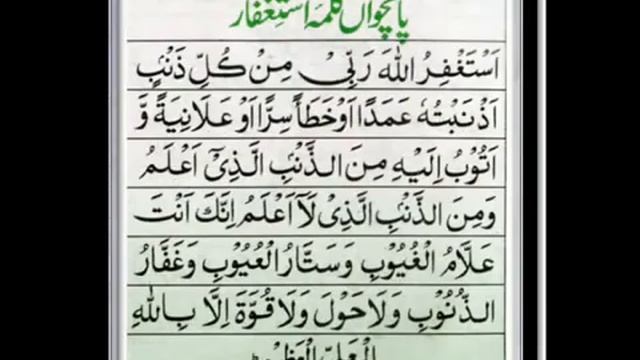 پانچواں کلمہ استغفار
اَسْتَغْفِرُ اللهَ رَبِّیْ مِنْ كُلِّ ذَنْۢبٍ
اَذْنَبْتُهٗ عَمَدًا اَوْ خَطَأً سِرًّا اَوْ عَلَانِيَةً وَّ
اَتُوْبُ اِلَيْهِ مِنَ الذَّنْۢبِ الَّذِیْٓ اَعْلَمُ
وَمِنَ الذَّنْۢبِ الَّذِیْ لَآ اَعْلَمُ اِنَّكَ اَنْتَ
عَلَّامُ الْغُيُوْبِ وَسَتَّارُ الْعُيُوْبِ وَغَفَّارُ
الذُّنُوْبِ وَلَا حَوْلَ وَلَا قُوَّةَ اِلَّا بِاللهِ
الْعَلِیِّ الْعَظِيْمِ